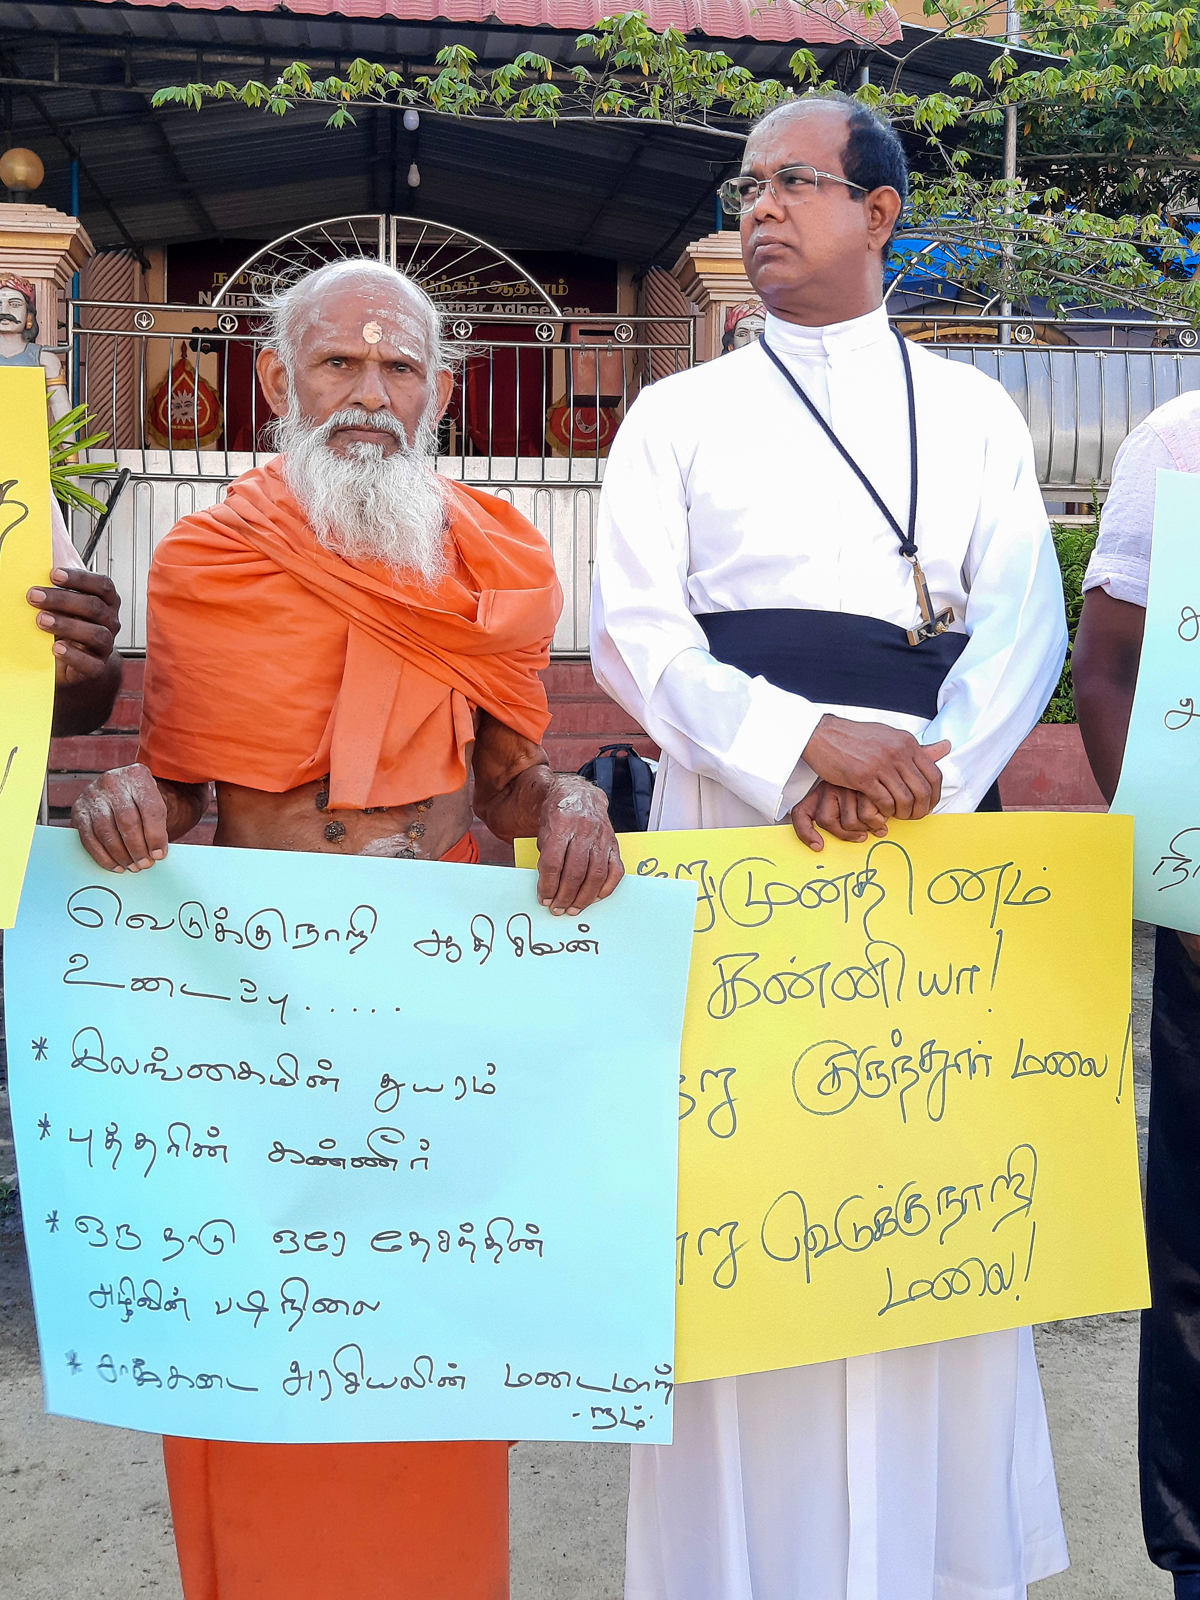 நல்லை
Nallan
Adheenam
ஆதீனம்
வெடுக்குநாறி ஆதி சிவன்
உடைப்பு......
* இலங்கையின் துயரம்
* புத்தரின் கண்ணீர்
* ஒரு நாடு ஒரே தேசத்தின்
அழிவின் படிநிலை
* சாக்கடை அரசியலின் மடைமாற்
-றம்.
முன்தினம்
கன்னியா!
குருந்தூர் மலை!
வெடுக்குநாறி
மலை!